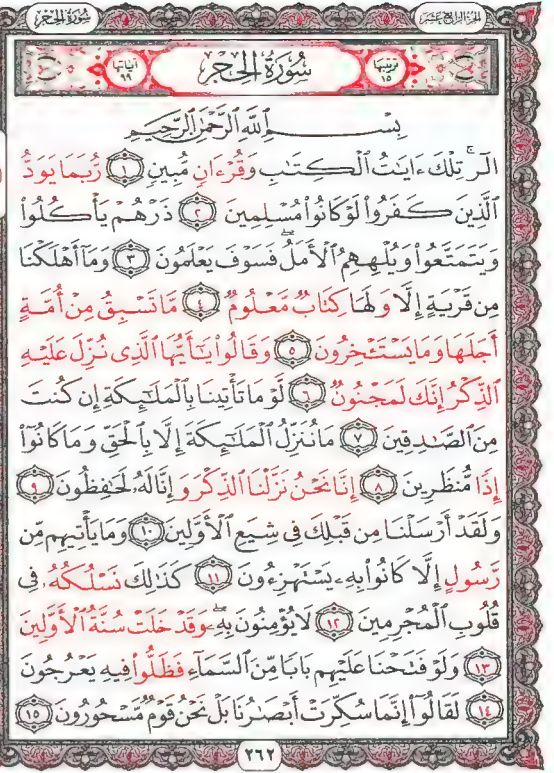 سُورَةُ الحِجْرِ
الجُزءُ الرَّابِعَ عَشَرَ
ترتيبها ١٥
سُورَةُ الحِجْرِ
آياتها ٩٩
بِسْمِ ٱللَّهِ ٱلرَّحْمَٰنِ ٱلرَّحِيمِ
الٓر ۚ تِلْكَ ءَايَٰتُ ٱلْكِتَٰبِ وَقُرْءَانٍ مُّبِينٍ ١ رُّبَمَا يَوَدُّ
ٱلَّذِينَ كَفَرُوا۟ لَوْ كَانُوا۟ مُسْلِمِينَ ٢ ذَرْهُمْ يَأْكُلُوا۟
وَيَتَمَتَّعُوا۟ وَيُلْهِهِمُ ٱلْأَمَلُ ۖ فَسَوْفَ يَعْلَمُونَ ٣ وَمَآ أَهْلَكْنَا
مِن قَرْيَةٍ إِلَّا وَلَهَا كِتَابٌ مَّعْلُومٌ ٤ مَّا تَسْبِقُ مِنْ أُمَّةٍ
أَجَلَهَا وَمَا يَسْتَـْٔخِرُونَ ٥ وَقَالُوا۟ يَٰٓأَيُّهَا ٱلَّذِى نُزِّلَ عَلَيْهِ
ٱلذِّكْرُ إِنَّكَ لَمَجْنُونٌ ٦ لَّوْ مَا تَأْتِينَا بِٱلْمَلَٰٓئِكَةِ إِن كُنتَ
مِنَ ٱلصَّٰدِقِينَ ٧ مَا نُنَزِّلُ ٱلْمَلَٰٓئِكَةَ إِلَّا بِٱلْحَقِّ وَمَا كَانُوٓا۟
إِذًا مُّنظَرِينَ ٨ إِنَّا نَحْنُ نَزَّلْنَا ٱلذِّكْرَ وَإِنَّا لَهُۥ لَحَٰفِظُونَ ٩
وَلَقَدْ أَرْسَلْنَا مِن قَبْلِكَ فِى شِيَعِ ٱلْأَوَّلِينَ ١٠ وَمَا يَأْتِيهِم مِّن
رَّسُولٍ إِلَّا كَانُوا۟ بِهِۦ يَسْتَهْزِءُونَ ١١ كَذَٰلِكَ نَسْلُكُهُۥ فِى
قُلُوبِ ٱلْمُجْرِمِينَ ١٢ لَا يُؤْمِنُونَ بِهِۦ ۖ وَقَدْ خَلَتْ سُنَّةُ ٱلْأَوَّلِينَ
١٣ وَلَوْ فَتَحْنَا عَلَيْهِم بَابًا مِّنَ ٱلسَّمَآءِ فَظَلُّوا۟ فِيهِ يَعْرُجُونَ
١٤ لَقَالُوٓا۟ إِنَّمَا سُكِّرَتْ أَبْصَٰرُنَا بَلْ نَحْنُ قَوْمٌ مَّسْحُورُونَ ١٥
٢٦٢